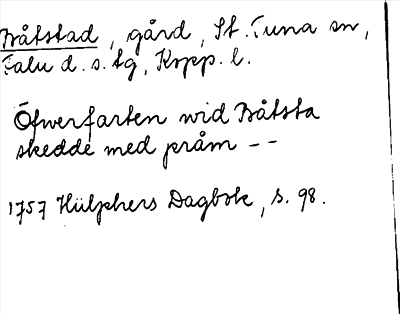 Båtstad, gård, St. Tuna sn,
Falu d. s. tg, Kopp. l.
Öfwerfarten wid Båtsta
skedde med pråm --
1757 Hülphers Dagbok, s. 98.